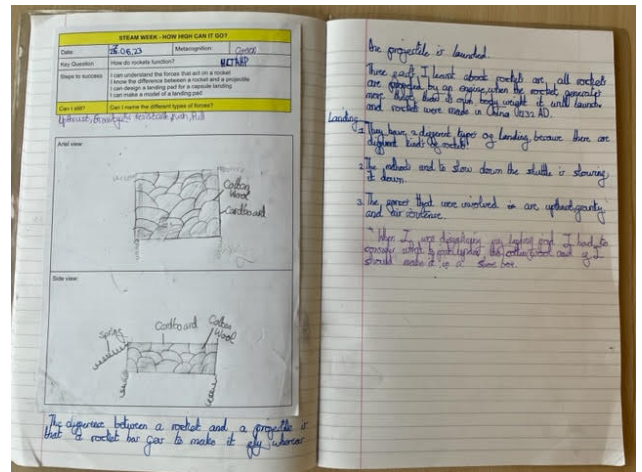 STEAM WEEK - HOW HIGH CAN IT GO?
Date: 28.06.23 Metacognition:
Key Question How do rockets function?
Steps to success I can understand the forces that act on a rocket
I know the difference between a rocket and a projectile
I can design a landing pad for a capsule landing
I can make a model of a landing pad
Can I still? Can I name the different types of forces?
Upthrust, Gravity, air resistance, push, Pull
Ariel view:
Cotton
Wool
Cardboard
Side view:
Sponge
Cardboard
Cotton
Wool
The difference between a rocket and a projectile is
that a rocket has gas to make it fly whereas
the projectile is launched.
Three facts I learnt about rockets are, all rockets
are powered by an engine, when the rocket generates
more thrust than its own body weight it will launch
and rockets were made in China 1232 AD.
Landing
1. They have a different type of landing because there are
different kinds of rockets.
2. The methods and to slow down the shuttle is slowing
it down.
3. The forces that were involved in are upthrust, gravity
and air
When I was designing my landing pad I had to
consider what the cotton wool and if I
should make it in a shoe box.